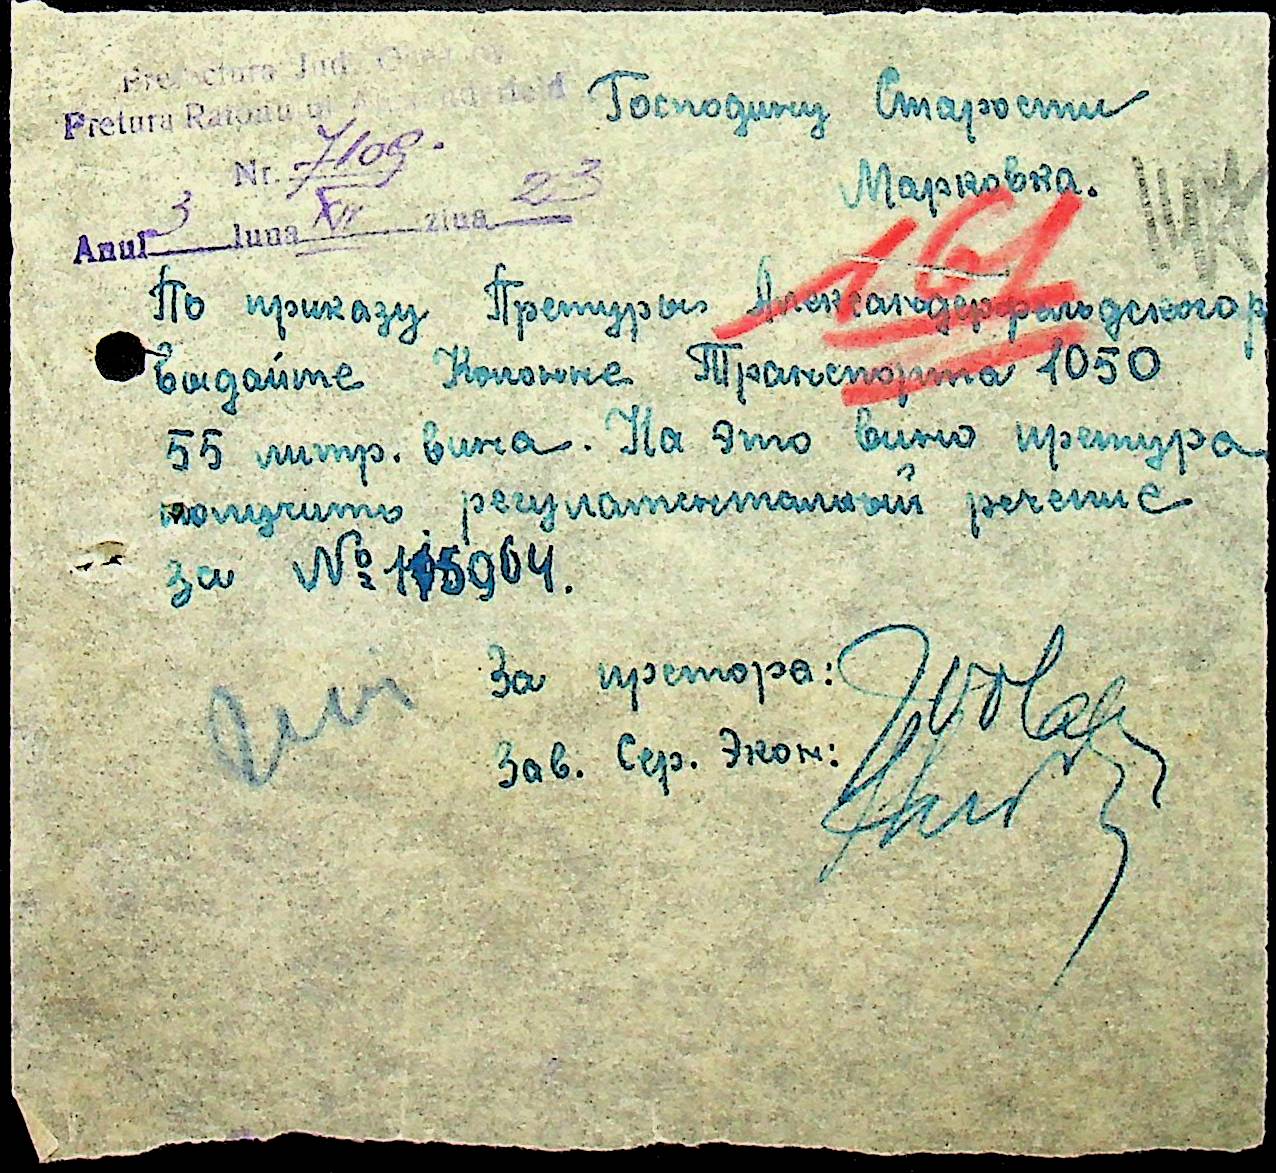 Prefectura Jud.
Pretura Raionului
Nr. 7109.
Anul 3 luna XII ziua 23
Господину Старости
Марковка.
161
По приказу Претуры Александерфельдского р
выдайте Колонне Транспорта 1050
55 литр. вина. На это вино претура
получить регуламентальный речепис
за № 115904.
За претора:
Зав. Сер. Экон: